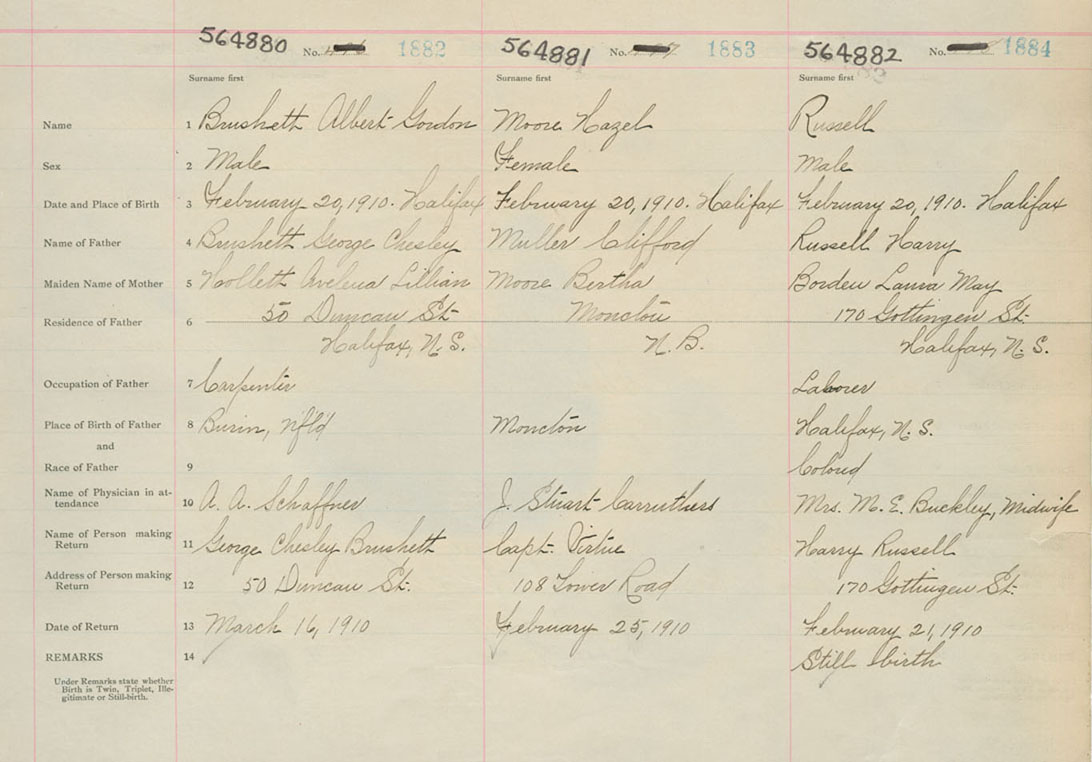 564880 No. 1882 564881 No. 1883 564882 No. 1884
Surname first Surname first Surname first
Name 1 Brushett Albert Gordon Moore Hazel Russell
Sex 2 Male Female Male
Date and Place of Birth 3 February 20, 1910. Halifax February 20, 1910. Halifax February 20, 1910. Halifax
Name of Father 4 Brushett George Chesley Muller Clifford Russell Harry
Maiden Name of Mother 5 Hollett Avelena Lillian Moore Bertha Borden Laura May
Residence of Father 6 50 Duncan St. Moncton 170 Gottingen St.
Halifax, N.S. N.B. Halifax, N.S.
Occupation of Father 7 Carpenter Laborer
Place of Birth of Father 8 Burin, Nfld Moncton Halifax, N.S.
and
Race of Father 9 Colored
Name of Physician in at-
tendance 10 A. A. Schaffner J. Stuart Carruthers Mrs. M. E. Buckley, Midwife
Name of Person making
Return 11 George Chesley Brushett Capt. Virtue Harry Russell
Address of Person making
Return 12 50 Duncan St. 108 Tower Road 170 Gottingen St.
Date of Return 13 March 16, 1910 February 25, 1910 February 21, 1910
REMARKS 14 Still birth
Under Remarks state whether
Birth is Twin, Triplet, Ille-
gitimate or Still-birth.